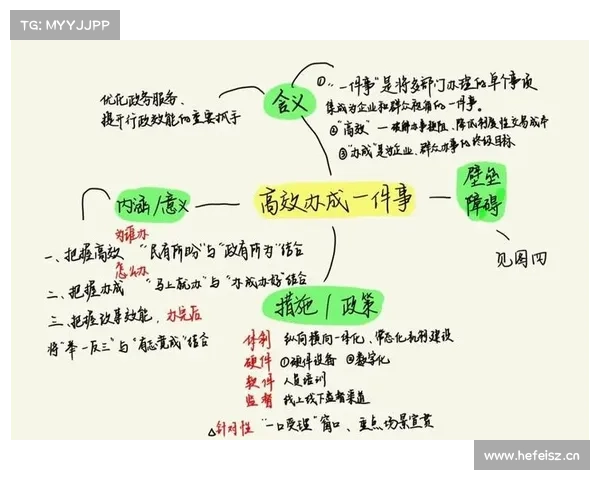 TG: MYYJJPP
含义
优化政务服务、
提升行政效能的重要抓手
①"一件事"是将多部门办理的单个事项
集成为企业和群众视角的一件事。
②"高效"— 破解办事梗阻、降低制度性交易成本
③"办成"是为企业、群众办事的终极目标
内涵/意义
高效办成一件事
壁垒
障碍
见图四
为谁办
一、把握高效 "民有所盼"与"政有所为"结合
怎么办
二、把握办成 "马上就办"与"办成办好"结合
三、把握改革效能,办完后
将"举一反三"与"有志竟成"结合
措施/政策
体制 纵向横向一体化、常态化机制建设
硬件 ①硬件设备 ②数字化
软件 人员培训
监督 线上线下监督渠道
△针对性 "一口受理"窗口、重点场景宣贯
www.hefeisz.cn